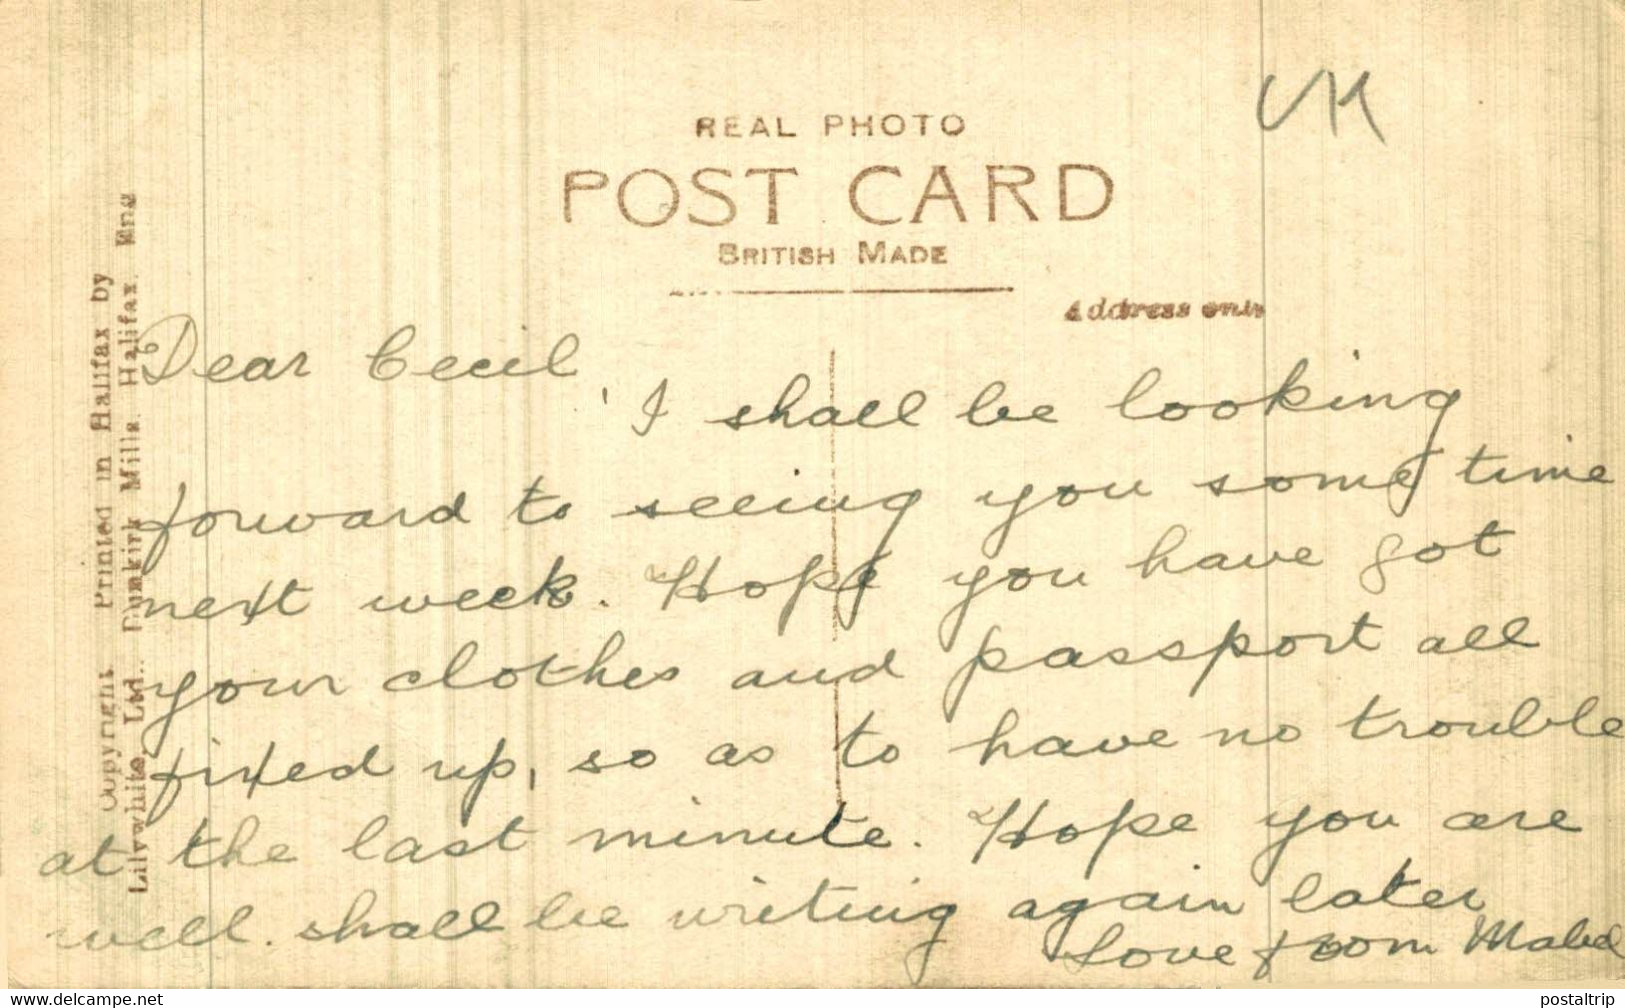 UK
REAL PHOTO
POST CARD
BRITISH MADE
Address only
Copyright Printed in Halifax by
Lilywhite Ltd. Dunkirk Mills. Halifax. Eng
Dear Cecil,
I shall be looking
forward to seeing you some time
next week. Hope you have got
your clothes and passport all
fixed up, so as to have no trouble
at the last minute. Hope you are
well. shall be writing again later
Love from Mabel
www.delcampe.net
postaltrip